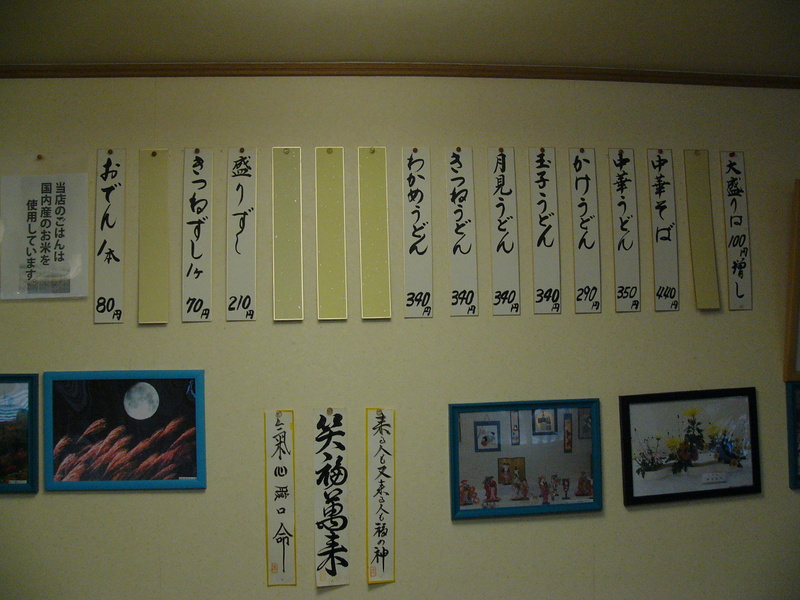 大盛りは100円増し
中華そば 440円
中華うどん 350円
かけうどん 290円
玉子うどん 340円
月見うどん 340円
きつねうどん 340円
わかめうどん 340円
盛りずし 210円
きつねずし1ケ 70円
おでん1本 80円
当店のごはんは
国内産のお米を
使用しています
来る人も又来る人も福の神
笑福萬来